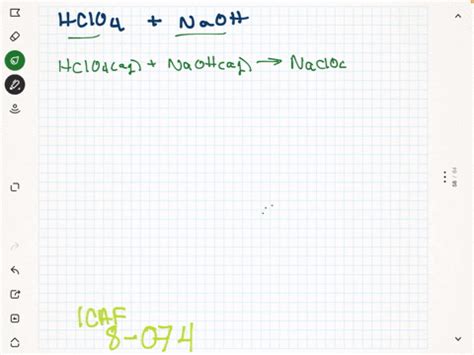 HClO4 + NaOH
HClO4(aq) + NaOH(aq) → NaClO
ICAF
8-074